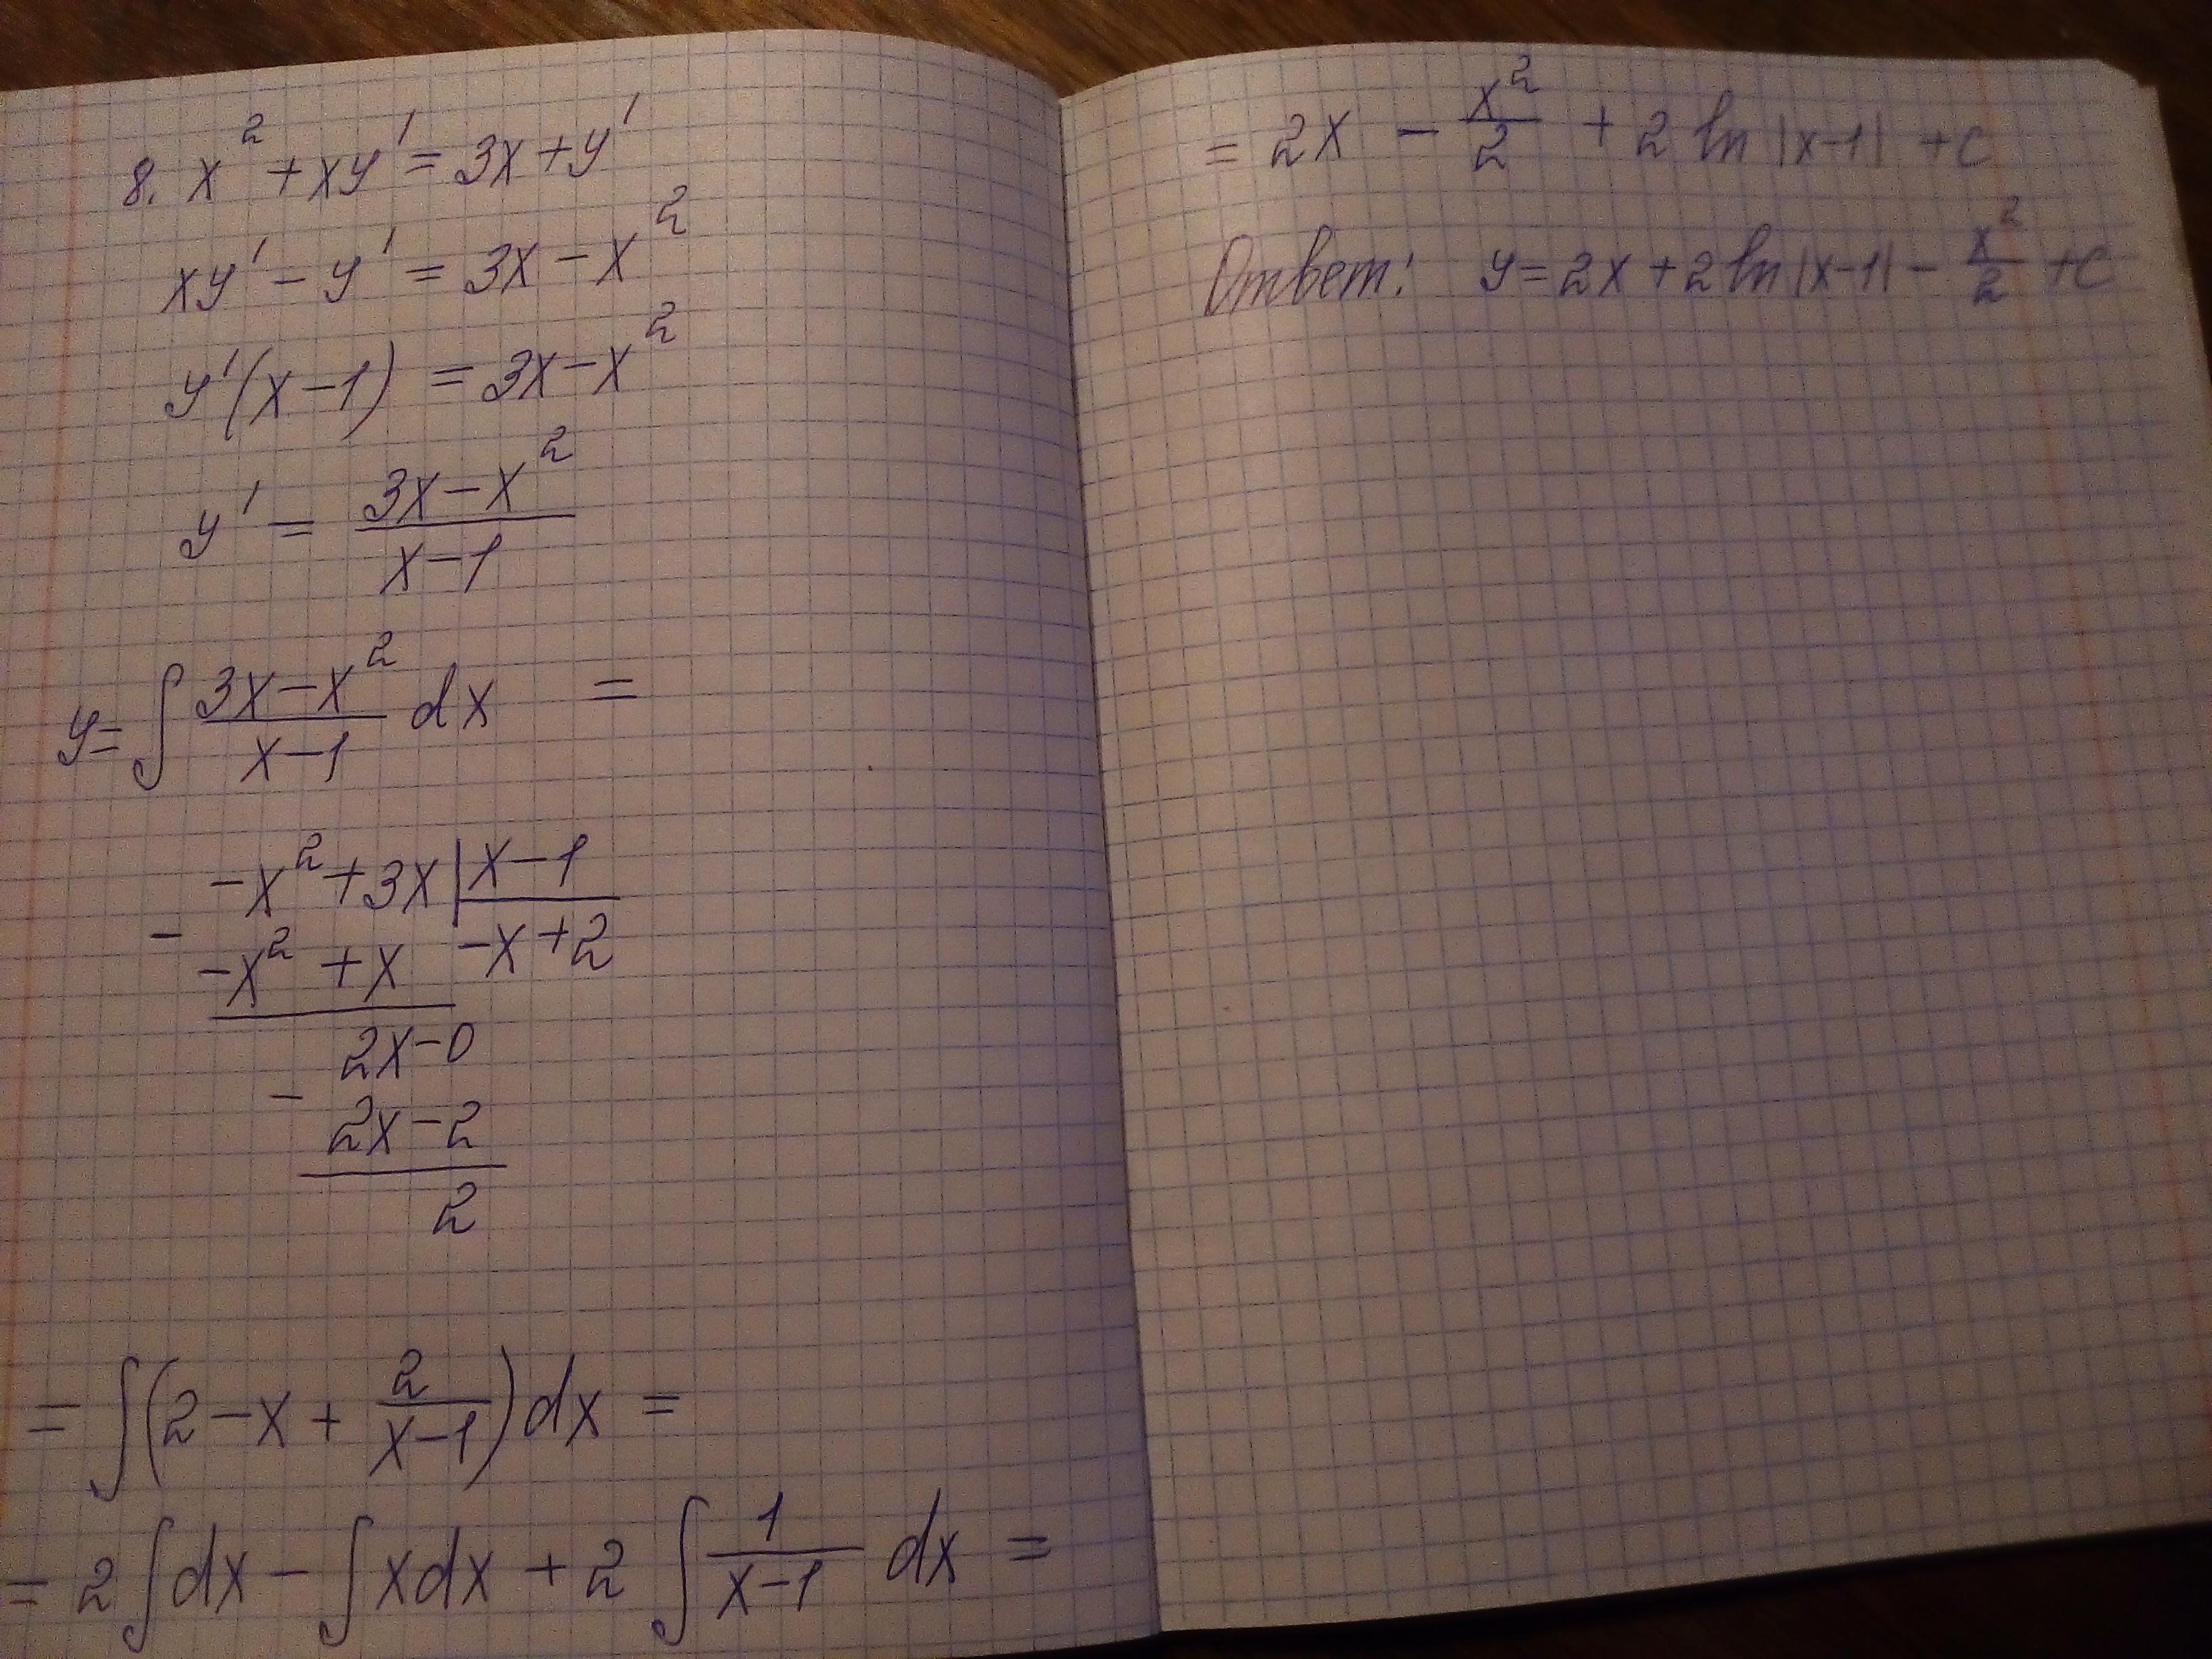 8. x² + xy' = 3x + y'
xy' - y' = 3x - x²
y'(x-1) = 3x - x²
y' = (3x - x²)/(x-1)
y = ∫ (3x - x²)/(x-1) dx =
-x² + 3x | x-1
- -x² + x -x+2
2x-0
- 2x-2
2
= ∫(2 - x + 2/(x-1)) dx =
= 2∫dx - ∫xdx + 2∫ 1/(x-1) dx =
= 2x - x²/2 + 2 ln|x-1| + c
Ответ: y = 2x + 2 ln|x-1| - x²/2 + c